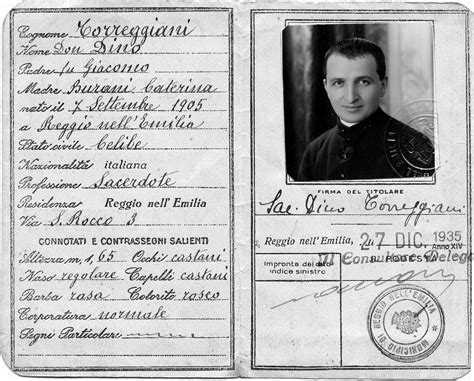 Cognome Correggiani
Nome Don Dino
Padre fu Giacomo
Madre Burani Caterina
nato il 7 Settembre 1905
a Reggio nell'Emilia
Stato civile Celibe
Nazionalità italiana
Professione Sacerdote
Residenza Reggio nell'Emilia
Via S. Rocco 3
CONNOTATI E CONTRASSEGNI SALIENTI
Altezza m. 1,65 Occhi castani
Naso regolare Capelli castani
Barba rasa Colorito roseo
Corporatura normale
Segni Particolari
FIRMA DEL TITOLARE
Sac. Dino Torreggiani
Reggio nell'Emilia, li 27 DIC. 1935
Anno XIV
Impronta del dito
indice sinistro
IL PODESTÀ
MUNICIPIO DI REGGIO NELL'EMILIA